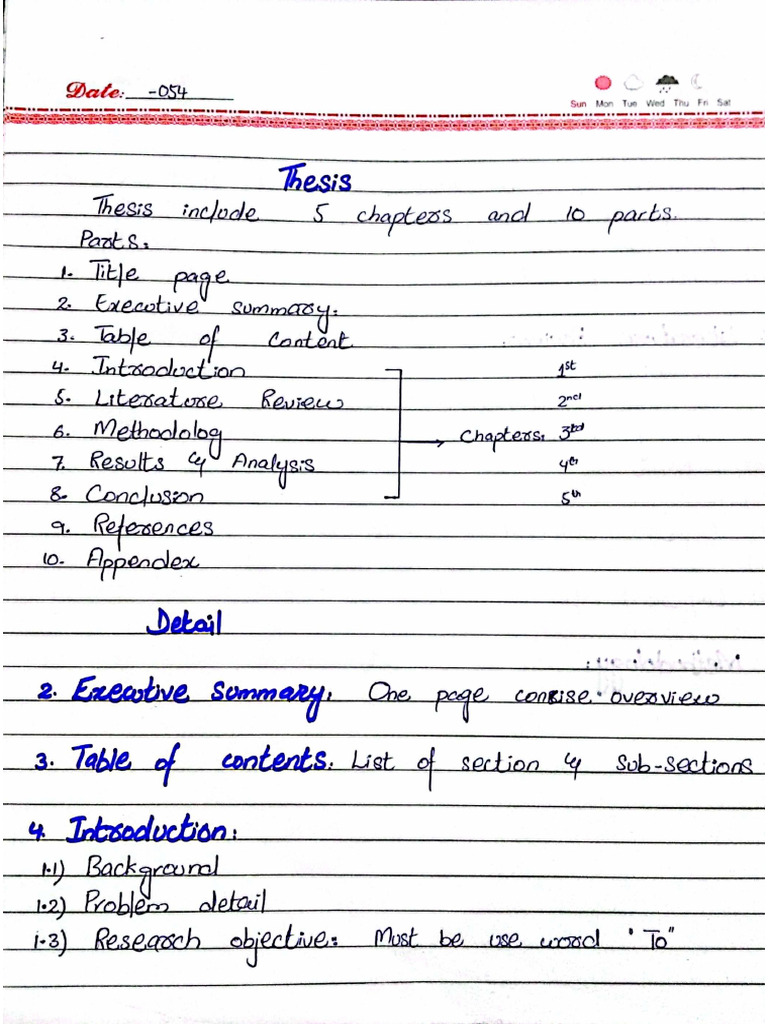 Date: -054
Sun Mon Tue Wed Thu Fri Sat
Thesis
Thesis include 5 chapters and 10 parts.
Parts:
1. Title page
2. Executive summary:
3. Table of Content
4. Introduction 1st
5. Literature Review 2nd
6. Methodolog Chapters: 3rd
7. Results & Analysis 4th
8. Conclusion 5th
9. References
10. Appendex
Detail
2. Executive summary: One page concise overview
3. Table of contents: List of section & sub-sections
4. Introduction:
1.1) Background
1.2) Problem detail
1.3) Research objective: Must be use word "To"